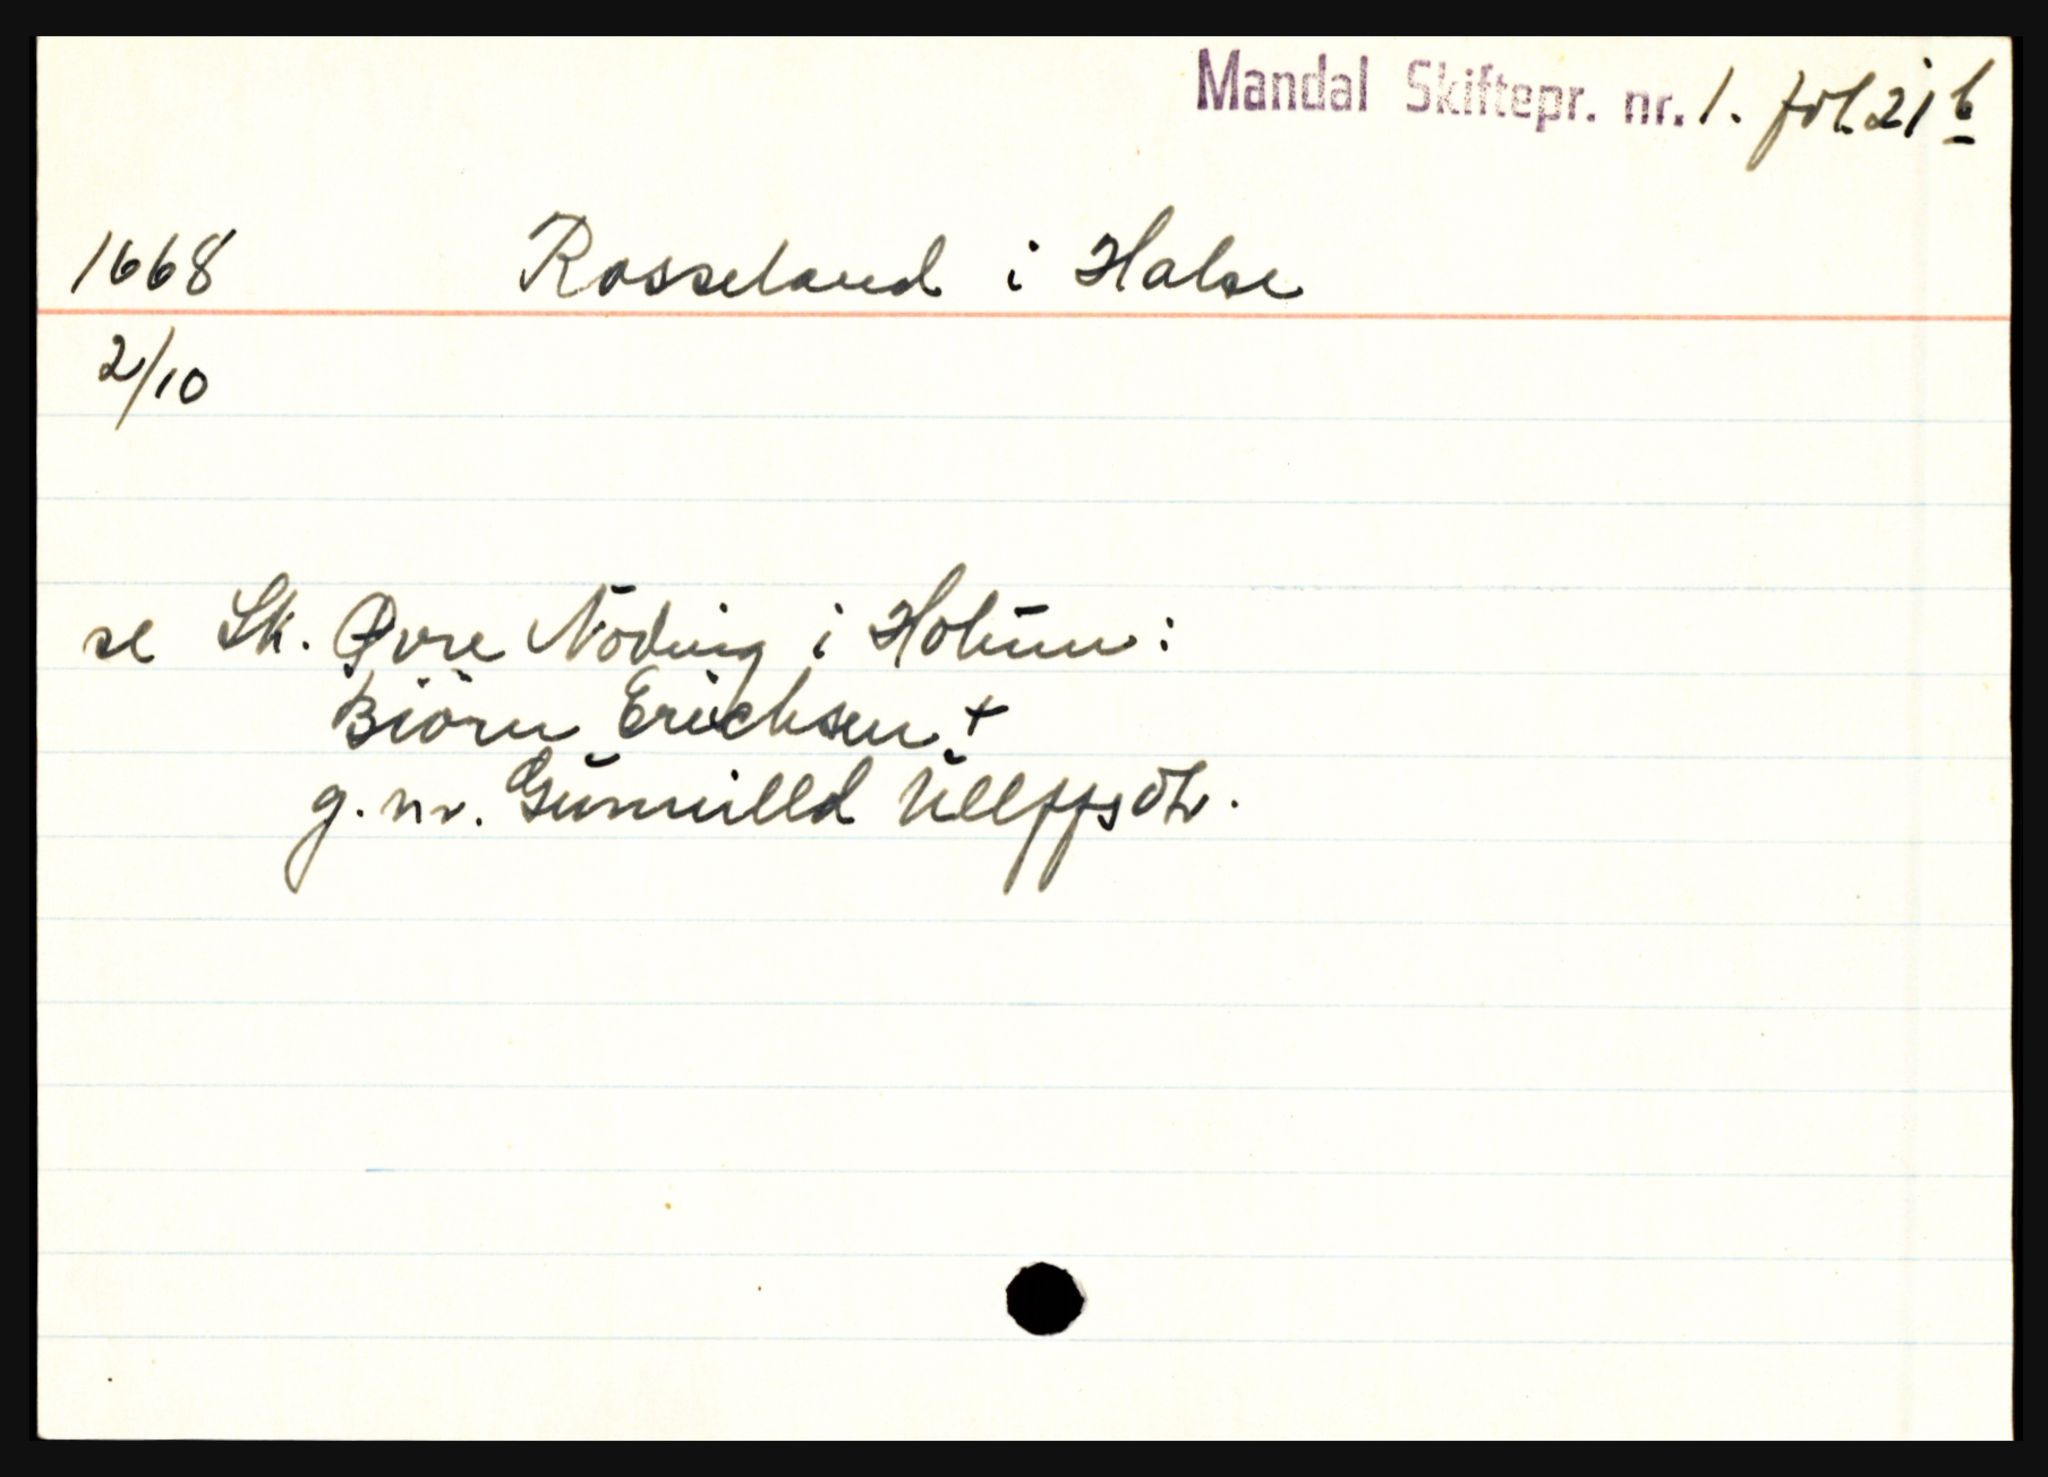 Mandal Skiftepr. nr. 1. fol. 21 b
1668 Rosseland i Halse
2/10
se Sk. Øvre Nöding i Holum:
Biörn Erichsen +
g.m. Gunnilld Ullffsdtr.